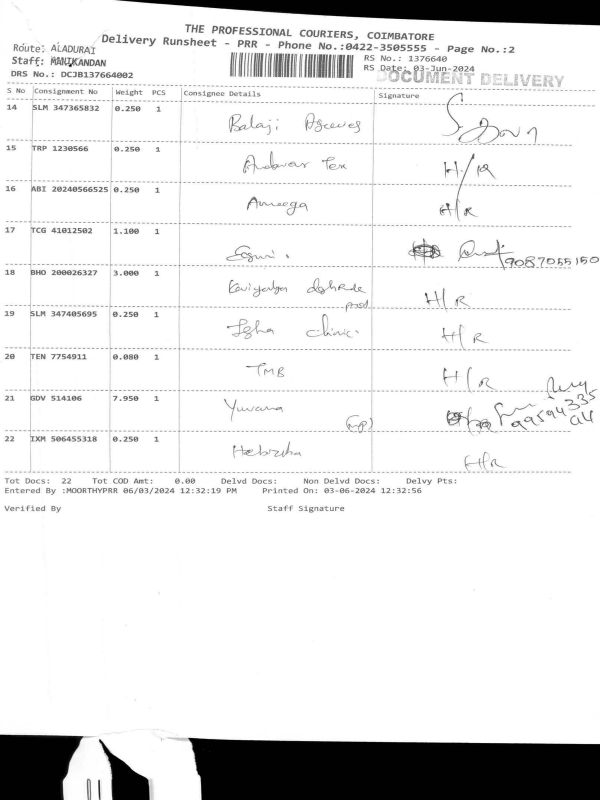 THE PROFESSIONAL COURIERS, COIMBATORE
Delivery Runsheet - PRR - Phone No.:0422-3505555 - Page No.:2
Route: ALADURAI
Staff: MANIKANDAN
RS No.: 1376640
RS Date: 03-Jun-2024
DRS No.: DCJB137664002
DOCUMENT DELIVERY
S No Consignment No Weight PCS Consignee Details Signature
14 SLM 347365832 0.250 1 Balaji
15 TRP 1230566 0.250 1 Tex H/R
16 ABI 20240566525 0.250 1 Ameega H/R
17 TCG 41012502 1.100 1 9087055150
18 BHO 200026327 3.000 1 H/R
19 SLM 347405695 0.250 1 Isha clinic. H/R
20 TEN 7754911 0.080 1 TMB H/R
21 GDV 514106 7.950 1 Yuvana
22 IXM 506455318 0.250 1 H/R
Tot Docs: 22 Tot COD Amt: 0.00 Delvd Docs: Non Delvd Docs: Delvy Pts:
Entered By :MOORTHYPRR 06/03/2024 12:32:19 PM Printed On: 03-06-2024 12:32:56
Verified By Staff Signature